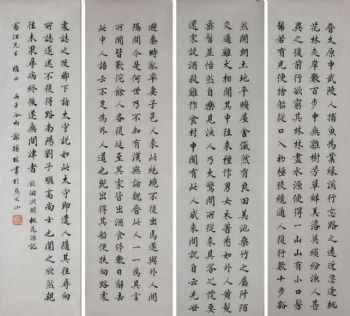 晉太原中武陵人捕魚為業緣溪行忘路之遠近忽逢桃
花林夾岸數百步中無雜樹芳草鮮美落英繽紛漁人甚
異之復前行欲窮其林林盡水源便得一山山有小口髣
髴若有光便捨船從口入初極狹纔通人復行數十步豁
然開朗土地平曠屋舍儼然有良田美池桑竹之屬阡陌
交通雞犬相聞其中往來種作男女衣著悉如外人黃髮
垂髫並怡然自樂見漁人乃大驚問所從來具答之便要
還家設酒殺雞作食村中聞有此人咸來問訊自云先世
避秦時亂率妻子邑人來此絕境不復出焉遂與外人間
隔問今是何世乃不知有漢無論魏晉此人一一為具言
所聞皆歎惋餘人各復延至其家皆出酒食停數日辭去
此中人語云不足為外人道也既出得其船便扶向路處
處誌之及郡下詣太守說如此太守即遣人隨其往尋向
所誌遂迷不復得路南陽劉子驥高尚士也聞之欣然規
往未果尋病終後遂無問津者 陶淵明桃花源記
江先生雅 丙子谷雨 林書於